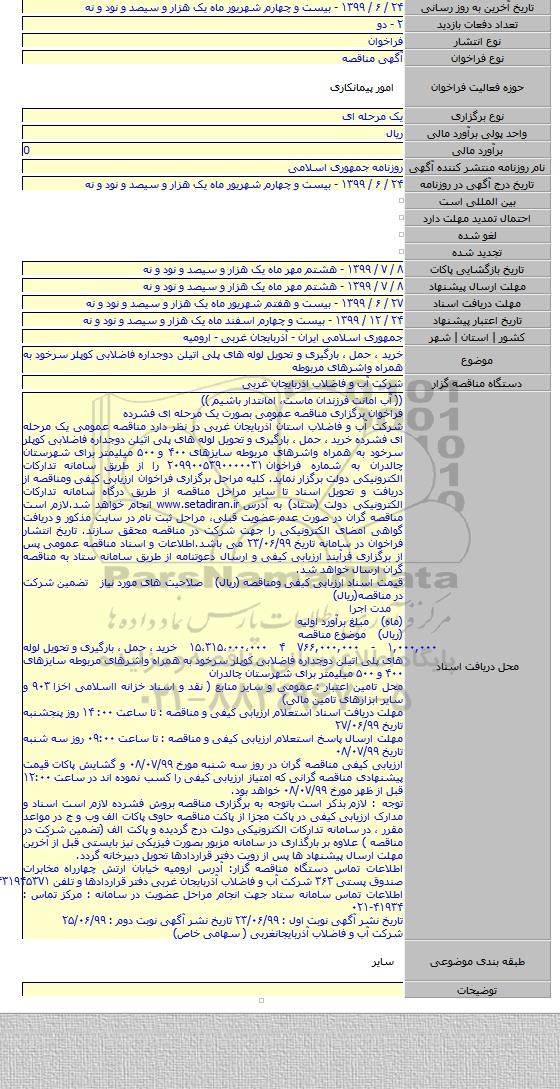 تاریخ آخرین به روز رسانی ۲۴ / ۶ / ۱۳۹۹ - بیست و چهارم شهریور ماه یک هزار و سیصد و نود و نه
تعداد دفعات بازدید ۲ - دو
نوع انتشار فراخوان
نوع فراخوان آگهی مناقصه
حوزه فعالیت فراخوان امور پیمانکاری
نوع برگزاری یک مرحله ای
واحد پولی برآورد مالی ریال
برآورد مالی 0
نام روزنامه منتشر کننده آگهی روزنامه جمهوری اسلامی
تاریخ درج آگهی در روزنامه ۲۴ / ۶ / ۱۳۹۹ - بیست و چهارم شهریور ماه یک هزار و سیصد و نود و نه
بین المللی است
احتمال تمدید مهلت دارد
لغو شده
تجدید شده
تاریخ بازگشایی پاکات ۸ / ۷ / ۱۳۹۹ - هشتم مهر ماه یک هزار و سیصد و نود و نه
مهلت ارسال پیشنهاد ۸ / ۷ / ۱۳۹۹ - هشتم مهر ماه یک هزار و سیصد و نود و نه
مهلت دریافت اسناد ۲۷ / ۶ / ۱۳۹۹ - بیست و هفتم شهریور ماه یک هزار و سیصد و نود و نه
تاریخ اعتبار پیشنهاد ۲۴ / ۱۲ / ۱۳۹۹ - بیست و چهارم اسفند ماه یک هزار و سیصد و نود و نه
کشور | استان | شهر جمهوری اسلامی ایران - آذربایجان غربی - ارومیه
موضوع خرید ، حمل ، بارگیری و تحویل لوله های پلی اتیلن دوجداره فاضلابی کوپلر سرخود به
همراه واشرهای مربوطه
دستگاه مناقصه گزار شرکت آب و فاضلاب آذربایجان غربی
محل دریافت اسناد
(( آب امانت فرزندان ماست، امانتدار باشیم ))
فراخوان برگزاری مناقصه عمومی بصورت یک مرحله ای فشرده
شرکت آب و فاضلاب استان آذربایجان غربی در نظر دارد مناقصه عمومی یک مرحله
ای فشرده خرید ، حمل ، بارگیری و تحویل لوله های پلی اتیلن دوجداره فاضلابی کوپلر
سرخود به همراه واشرهای مربوطه سایزهای ۴۰۰ و ۵۰۰ میلیمتر برای شهرستان
چالدران به شماره فراخوان ۲۰۹۹۰۰۵۳۹۰۰۰۰۰۳۱ را از طریق سامانه تدارکات
الکترونیکی دولت برگزار نماید. کلیه مراحل برگزاری فراخوان ارزیابی کیفی ومناقصه از
دریافت و تحویل اسناد تا سایر مراحل مناقصه از طریق درگاه سامانه تدارکات
الکترونیکی دولت (ستاد) به آدرس www.setadiran.ir انجام خواهد شد.لازم است
مناقصه گران در صورت عدم عضویت قبلی، مراحل ثبت نام در سایت مذکور و دریافت
گواهی امضای الکترونیکی را جهت شرکت در مناقصه محقق سازند. تاریخ انتشار
فراخوان در سامانه تاریخ ۲۳/۰۶/۹۹ می باشد.اطلاعات و اسناد مناقصه عمومی پس
از برگزاری فرآیند ارزیابی کیفی و ارسال دعوتنامه از طریق سامانه ستاد به مناقصه
گران ارسال خواهد شد.
قیمت اسناد ارزیابی کیفی ومناقصه (ریال) صلاحیت های مورد نیاز تضمین شرکت
در مناقصه(ریال)
مدت اجرا
(ماه) مبلغ برآورد اولیه
(ریال) موضوع مناقصه
۱,۰۰۰,۰۰۰ ۷۶۶,۰۰۰,۰۰۰ ۴ ۱۵،۳۱۵,۰۰۰,۰۰۰ خرید ، حمل ، بارگیری و تحویل لوله
های پلی اتیلن دوجداره فاضلابی کوپلر سرخود به همراه واشرهای مربوطه سایزهای
۴۰۰ و ۵۰۰ میلیمتر برای شهرستان چالدران
محل تامین اعتبار : عمومی و سایر منابع ( نقد و اسناد خزانه اسلامی اخزا ۹۰۳ و
سایر ابزارهای تامین مالی)
مهلت دریافت اسناد استعلام ارزیابی کیفی و مناقصه : تا ساعت ۱۴:۰۰ روز پنجشنبه
تاریخ ۲۷/۰۶/۹۹
مهلت ارسال پاسخ استعلام ارزیابی کیفی و مناقصه : تا ساعت ۰۹:۰۰ روز سه شنبه
تاریخ ۰۸/۰۷/۹۹
ارزیابی کیفی مناقصه گران در روز سه شنبه مورخ ۰۸/۰۷/۹۹ و گشایش پاکات قیمت
پیشنهادی مناقصه گرانی که امتیاز ارزیابی کیفی را کسب نموده اند در ساعت ۱۲:۰۰
قبل از ظهر مورخ ۰۸/۰۷/۹۹ خواهد بود.
توجه : لازم بذکر است باتوجه به برگزاری مناقصه بروش فشرده لازم است اسناد و
مدارک ارزیابی کیفی در پاکت مجزا از پاکت مناقصه حاوی پاکات الف وب و ج در مواعد
مقرر ، در سامانه تدارکات الکترونیکی دولت درج گردیده و پاکت الف (تضمین شرکت در
مناقصه ) علاوه بر بارگذاری در سامانه مزبور بصورت فیزیکی نیز بایستی قبل از آخرین
مهلت ارسال پیشنهاد ها پس از رویت دفتر قراردادها تحویل دبیرخانه گردد.
اطلاعات تماس دستگاه مناقصه گزار: آدرس ارومیه خیابان ارتش چهارراه مخابرات
صندوق پستی ۳۶۳ شرکت آب و فاضلاب آذربایجان غربی دفتر قراردادها و تلفن
اطلاعات تماس سامانه ستاد جهت انجام مراحل عضویت در سامانه : مرکز تماس :
۰۲۱-۴۱۹۳۴
تاریخ نشر آگهی نوبت اول : ۲۳/۰۶/۹۹ تاریخ نشر آگهی نوبت دوم : ۲۵/۰۶/۹۹
شرکت آب و فاضلاب آذربایجانغربی ( سهامی خاص)
طبقه بندی موضوعی سایر
توضیحات
ParsNamadData